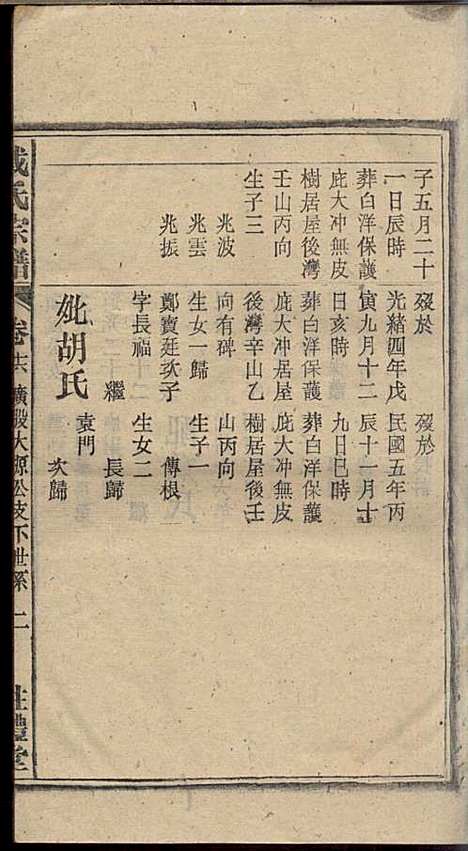 子五月二十
一日辰時
葬白洋保護
庇大冲無皮
樹居屋後灣
壬山丙向
生子三
兆波
兆雲
兆振
歿於
光緒四年戊
寅九月十二
日亥時
葬白洋保護
庇大冲居屋
後灣辛山乙
向有碑
生女一歸
鄭寶廷次子
字長福
繼
妣胡氏
歿於
民國五年丙
辰十一月十
九日巳時
葬白洋保護
庇大冲無皮
樹居屋後壬
山丙向
生子一
傳根
生女二
長歸
袁門
次歸
氏宗譜
卷十六 廣股大源公支下世系 二
禮堂